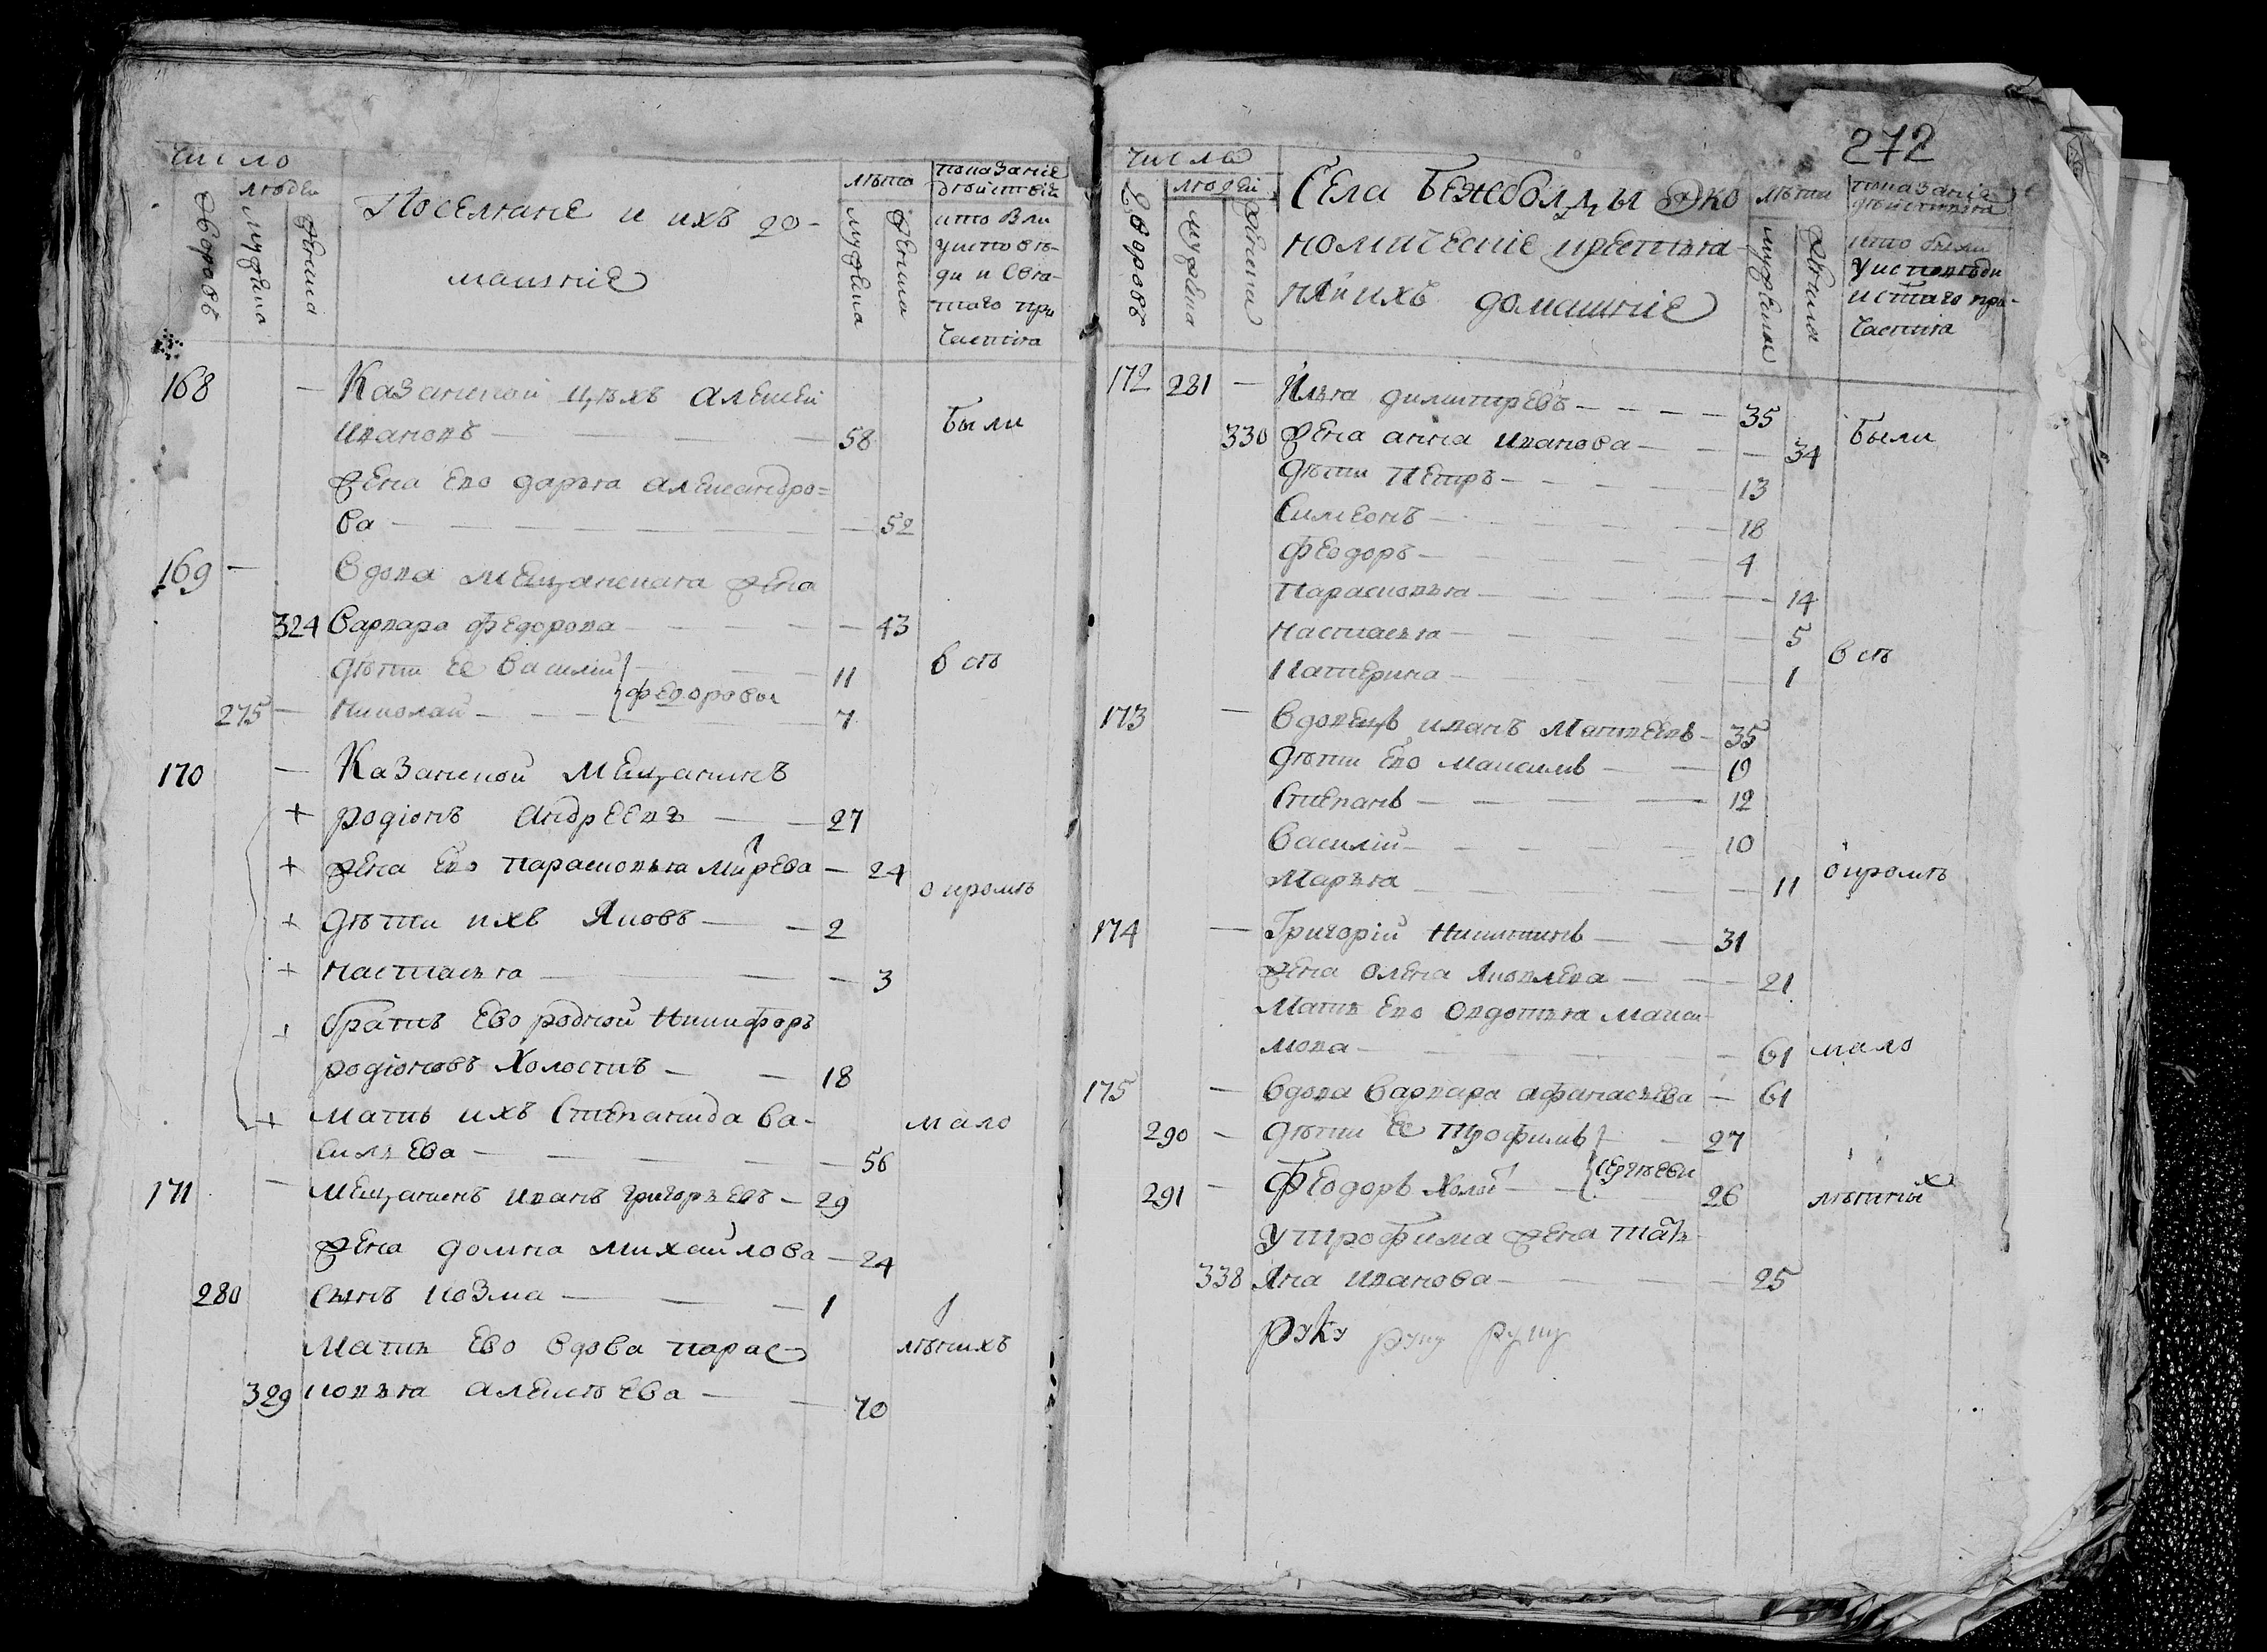 число
людей
дворовъ
мужеска
женска
Поселяне и ихъ до-
машние
лѣта
мужеска
женска
показание
действий
кто были
у исповѣ-
ди и свя-
таго при
частия
168 — Казанской цѣхъ Алексей
Ивановъ — 58 были
жена ево Дарья Александро=
ва — 52
169 — вдова мещанская жена
324 Варвара Федорова — 43
дѣти ее Василий } — 11 всѣ
Федоровы
275 — Николай — 7
170 — Казанской мещанинъ
+ Родионъ Андреевъ — 27
+ жена ево Парасковья — 24 окромѣ
+ дѣти ихъ Яковъ — 2
+ Настасья — 3
+ братъ ево родной Никифоръ
Родионовъ холостъ — 18
+ мать ихъ Степанида Ва- мало
сильева — 56
171 — мещанинъ Иванъ Григорьевъ — 29
жена Домна Михайлова — 24
280 сынъ Козма — 1
мать ево вдова Парас лѣтнихъ
329 ковья Алексѣева — 70
272
числа
людей
дворовъ
мужеска
женска
Села Бежболды эко
номические крестья
не и ихъ домашние
лѣта
мужеска
женска
показания
действия
кто были
у исповѣди
и стаго при-
частия
172 281 — Илья Димитревъ — 35
330 жена Анна Иванова — 34 были
дѣти Петръ — 13
Симеонъ — 18
Феодоръ — 4
Парасковья — 14
Настасья — 5 всѣ
Катерина — 1
173 — вдовецъ Иванъ Матвеевъ — 35
дѣти ево Максимъ — 19
Степанъ — 12
Василий — 10
Марья — 11 окромѣ
174 — Григорий Никитинъ — 31
жена Олена Яковлева — 21
мать ево Овдотья Макси
мова — 61 мало
175 — вдова Варвара Афанасьева — 61
290 — дѣти ее Трофимъ } — 27
Сергѣевы
291 — Феодоръ холос — 26 лѣтныхъ
у Трофима жена Тать
338 яна Иванова — 25
руку руку руку